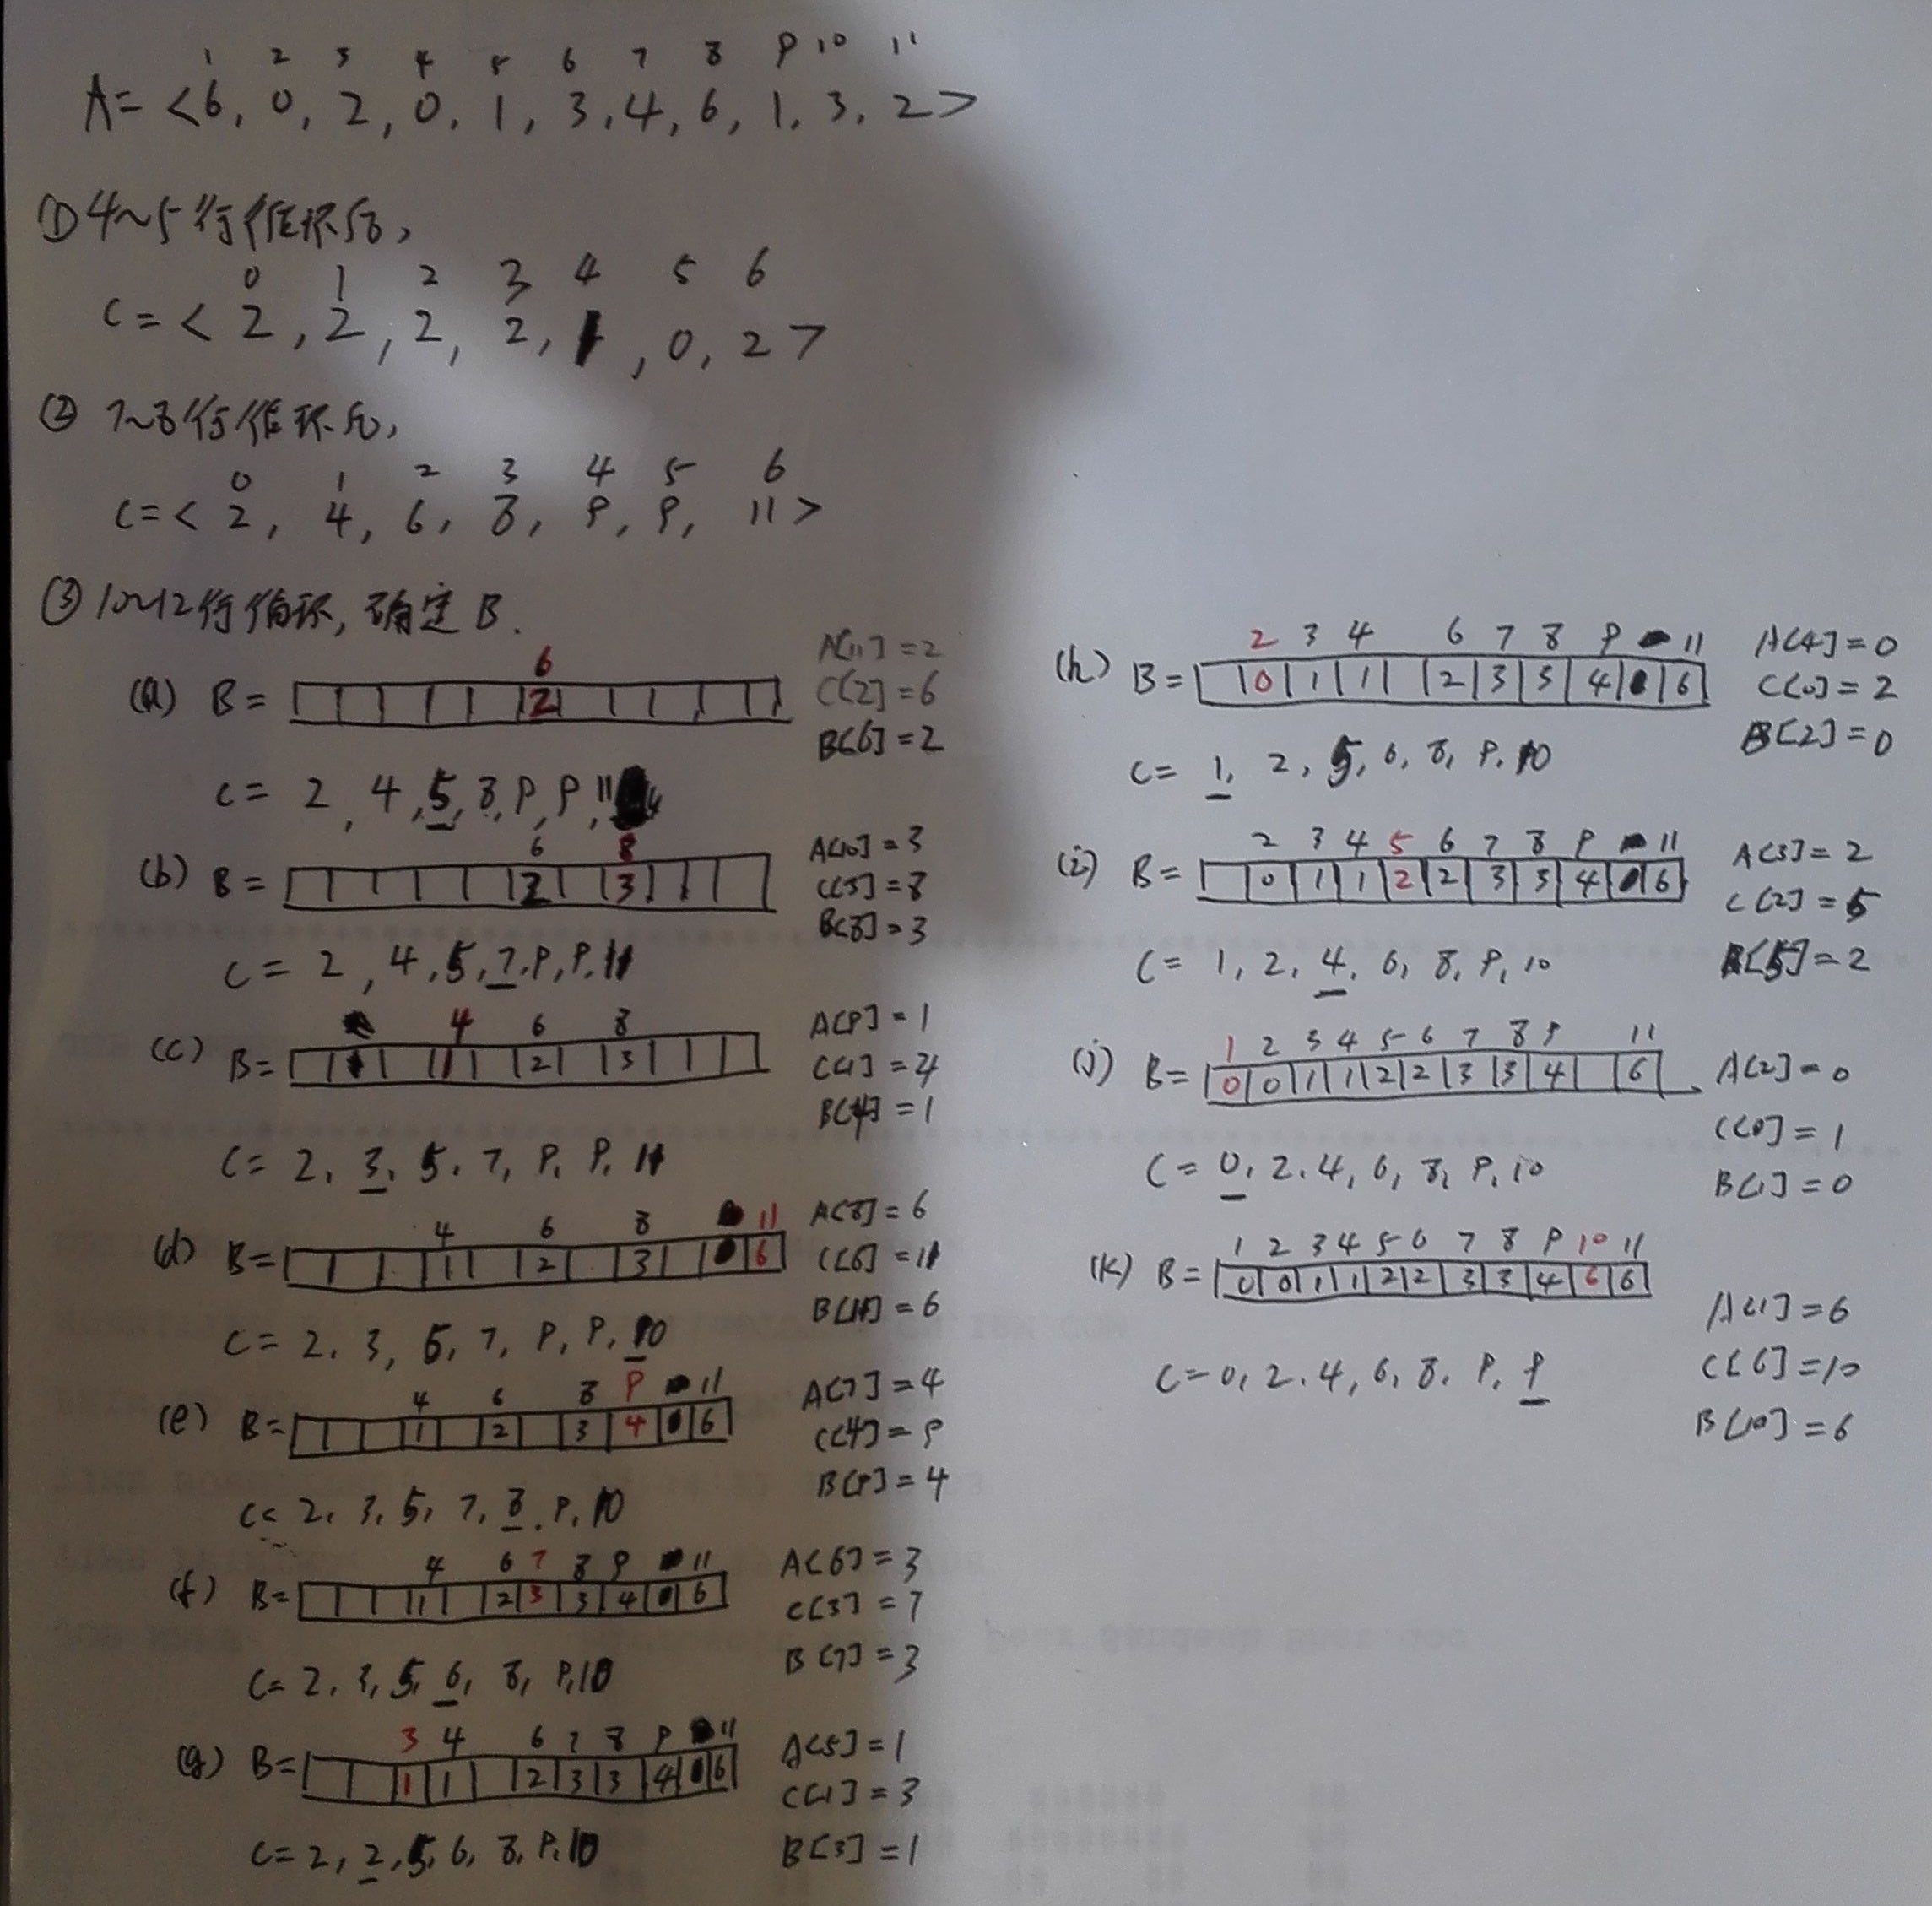 1 2 3 4 5 6 7 8 9 10 11
A = <6, 0, 2, 0, 1, 3, 4, 6, 1, 3, 2>
① 4~5行循环后,
0 1 2 3 4 5 6
C = < 2, 2, 2, 2, 1, 0, 2 >
② 7~8行循环后,
0 1 2 3 4 5 6
C = < 2, 4, 6, 8, 9, 9, 11 >
③ 10~12行循环, 确定 B.
6
(a) B = 2
A[11] = 2
C[2] = 6
B[6] = 2
C = 2, 4, 5, 8, 9, 9, 11
6 8
(b) B = 2 3
A[10] = 3
C[3] = 8
B[8] = 3
C = 2, 4, 5, 7, 9, 9, 11
4 6 8
(c) B = 1 2 3
A[9] = 1
C[1] = 4
B[4] = 1
C = 2, 3, 5, 7, 9, 9, 11
4 6 8 11
(d) B = 1 2 3 6
A[8] = 6
C[6] = 11
B[11] = 6
C = 2, 3, 5, 7, 9, 9, 10
4 6 8 9 11
(e) B = 1 2 3 4 6
A[7] = 4
C[4] = 9
B[9] = 4
C = 2, 3, 5, 7, 8, 9, 10
4 6 7 8 9 11
(f) B = 1 2 3 3 4 6
A[6] = 3
C[3] = 7
B[7] = 3
C = 2, 3, 5, 6, 8, 9, 10
3 4 6 7 8 9 11
(g) B = 1 1 2 3 3 4 6
A[5] = 1
C[1] = 3
B[3] = 1
C = 2, 2, 5, 6, 8, 9, 10
2 3 4 6 7 8 9 11
(h) B = 0 1 1 2 3 3 4 6
A[4] = 0
C[0] = 2
B[2] = 0
C = 1, 2, 5, 6, 8, 9, 10
2 3 4 5 6 7 8 9 11
(i) B = 0 1 1 2 2 3 3 4 6
A[3] = 2
C[2] = 5
B[5] = 2
C = 1, 2, 4, 6, 8, 9, 10
1 2 3 4 5 6 7 8 9 11
(j) B = 0 0 1 1 2 2 3 3 4 6
A[2] = 0
C[0] = 1
B[1] = 0
C = 0, 2, 4, 6, 8, 9, 10
1 2 3 4 5 6 7 8 9 10 11
(k) B = 0 0 1 1 2 2 3 3 4 6 6
A[1] = 6
C[6] = 10
B[10] = 6
C = 0, 2, 4, 6, 8, 9, 9